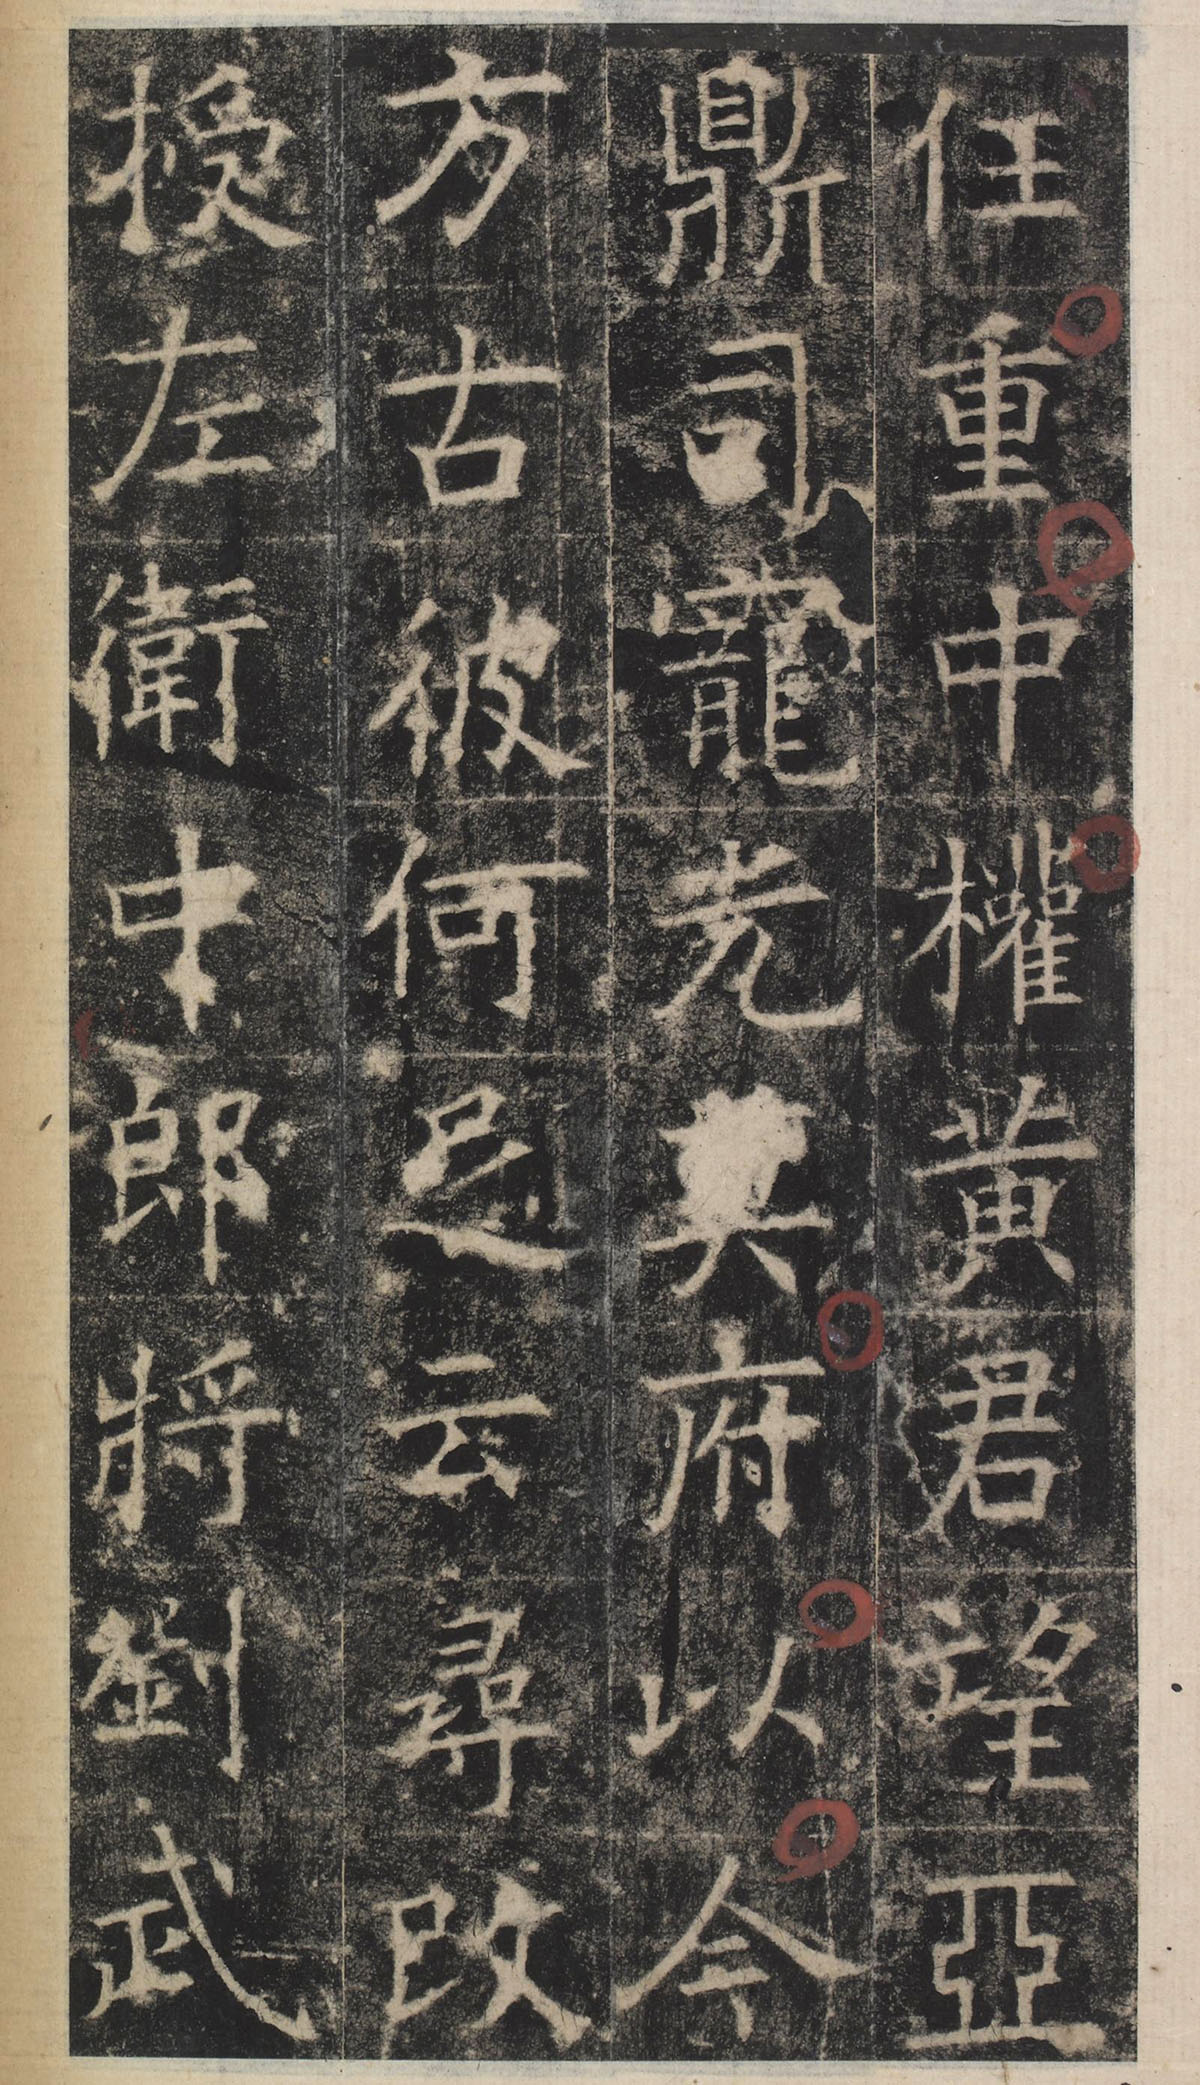 任重中權黃君望亞
鼎司寵光莫府以今
方古彼何足云尋改
授左衛中郎將劉武